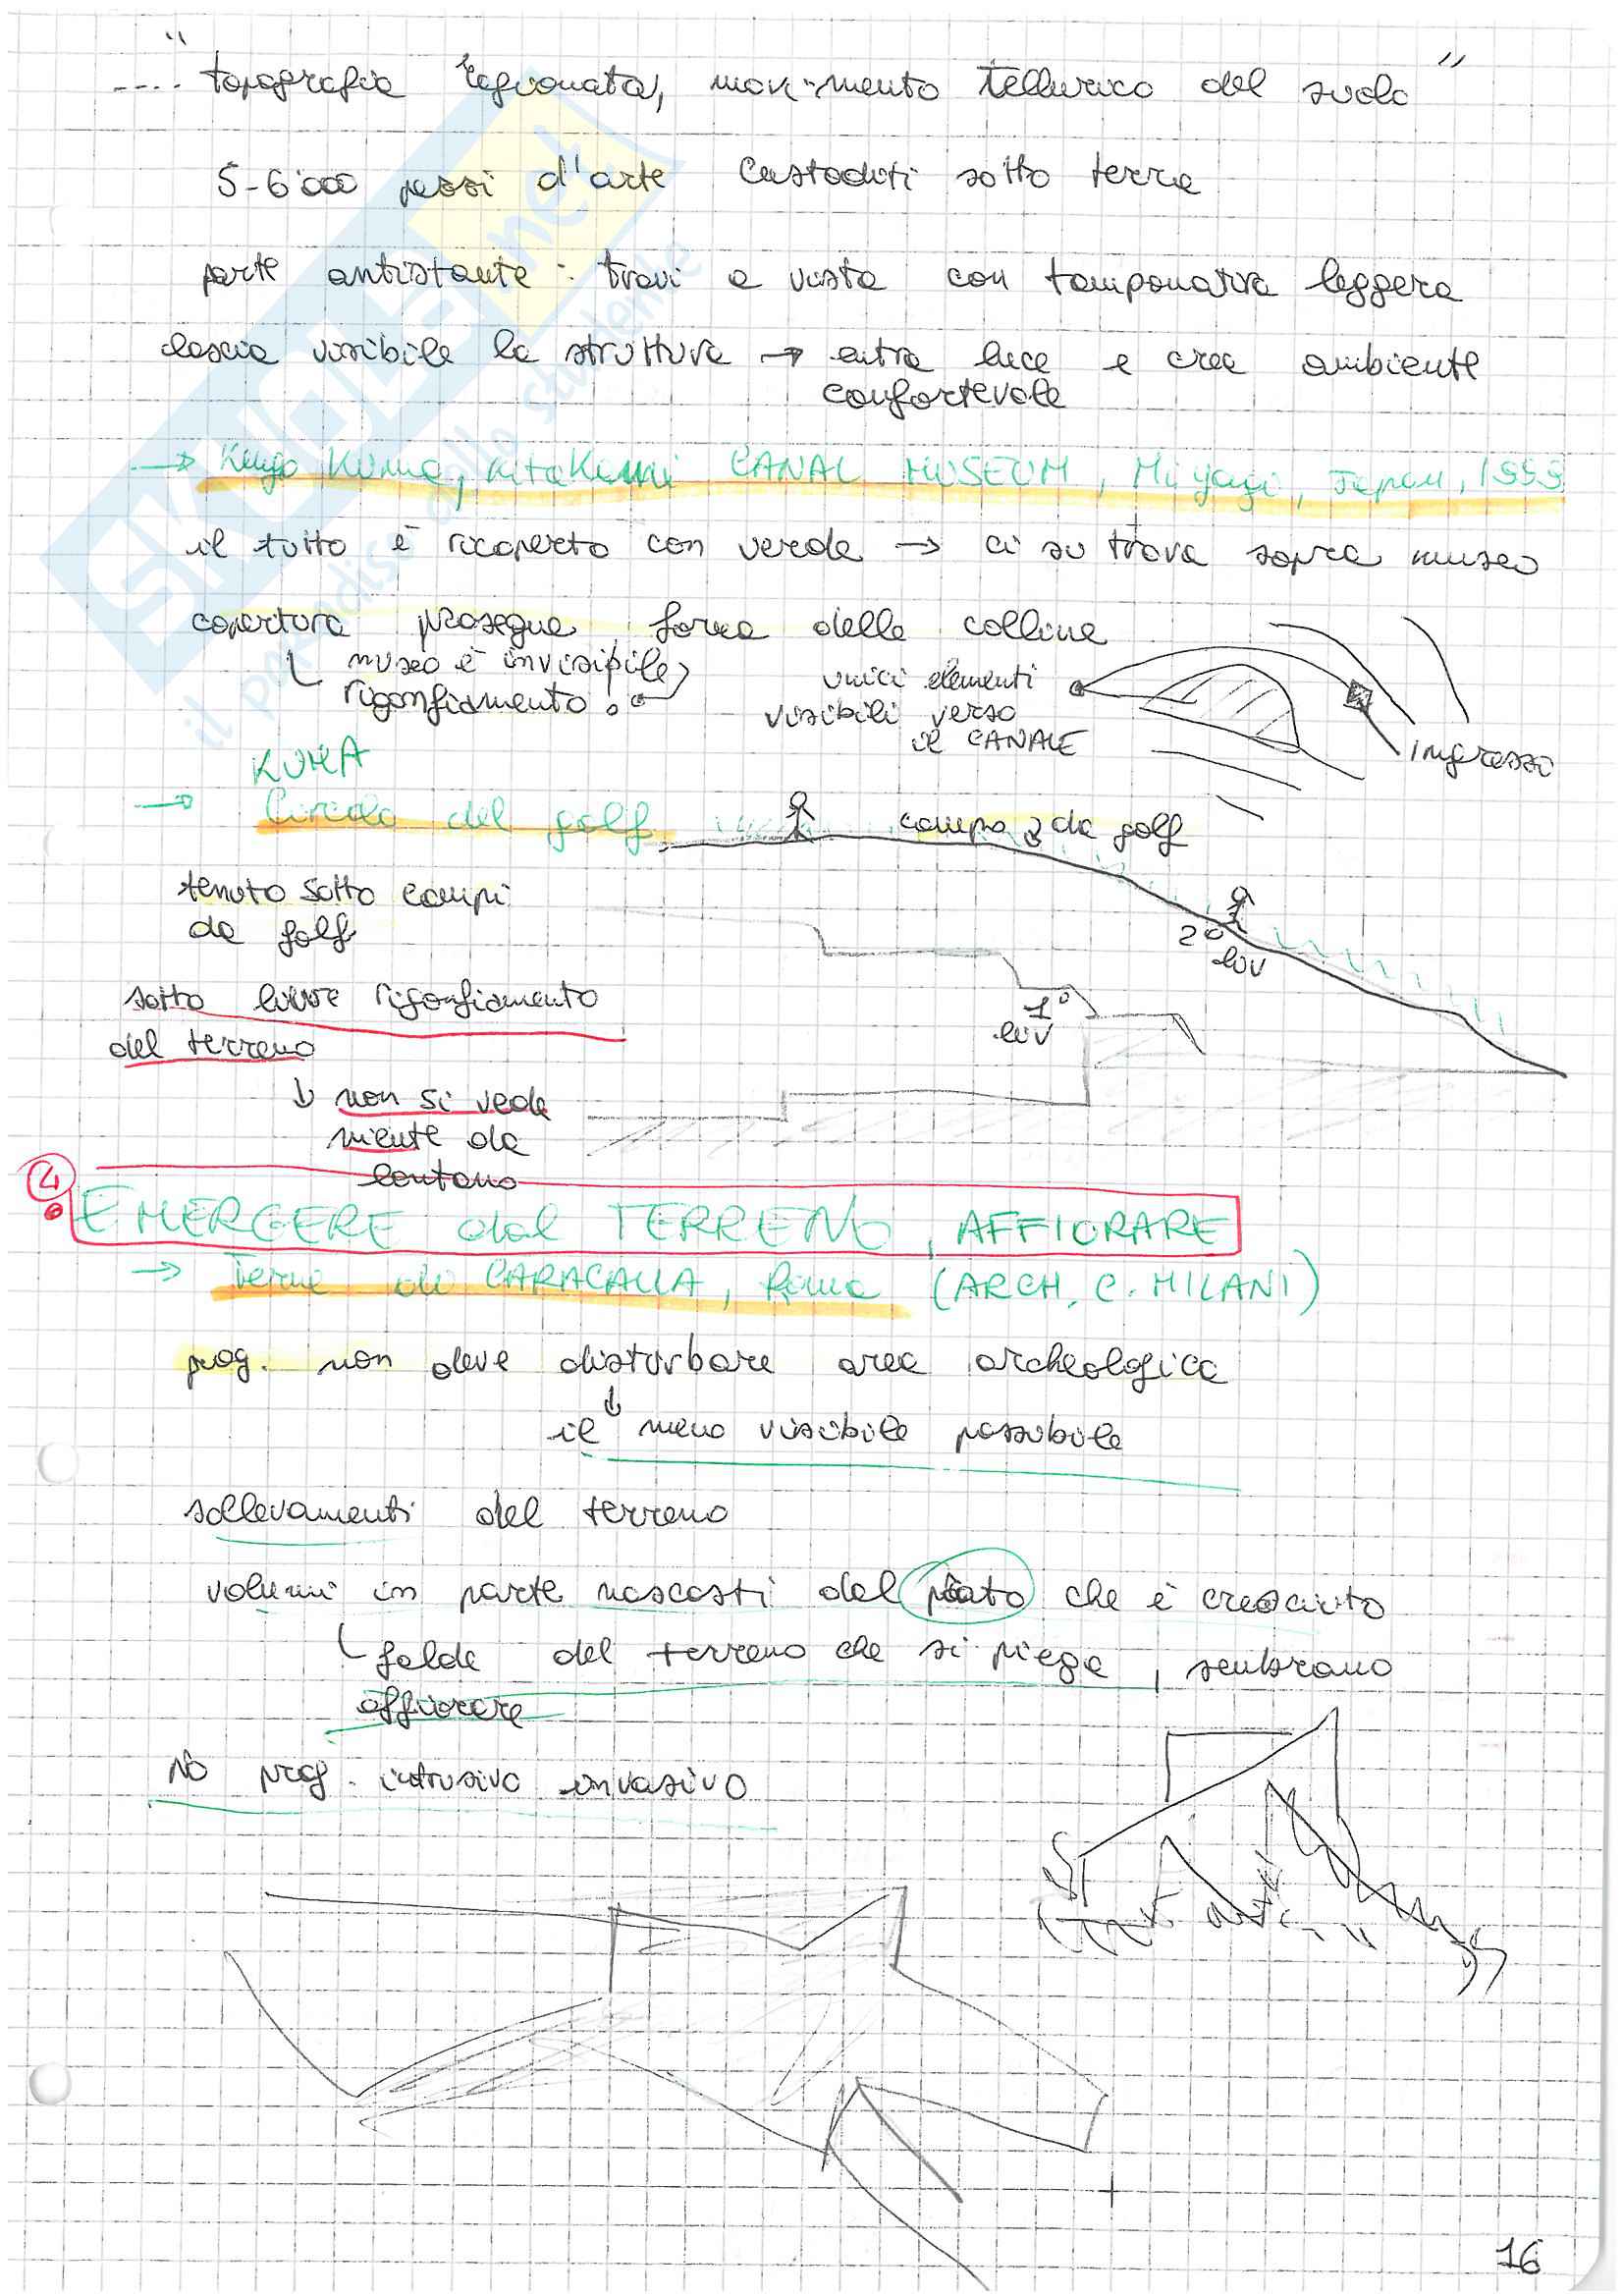 "
.... topografia ragionata, movimento tellurico del suolo "
5-6'000 pezzi d'arte custoditi sotto terra
parte antistante: travi a vista con tamponatura leggera
lascia visibile la struttura → entra luce e crea ambiente
confortevole
→ Kengo Kuma, Kitakami CANAL MUSEUM, Miyagi, Japan, 1999
il tutto è ricoperto con verde → ci si trova sopra museo
copertura prosegue forma delle colline
museo è invisibile
rigonfiamento!
unici elementi
visibili verso
il CANALE
ingresso
KUMA
→ Circolo del golf
campo da golf
tenuto sotto campi
da golf
2° liv
1° liv
sotto lieve rigonfiamento
del terreno
↓ non si vede
niente da
lontano
4
EMERGERE dal TERRENO, AFFIORARE
→ Terme di CARACALLA, Roma (ARCH. C. MILANI)
prog. non deve disturbare area archeologica
↓
il meno visibile possibile
sollevamenti del terreno
volumi in parte nascosti dal prato che è cresciuto
falde del terreno che si piega, sembrano
affiorare
NO prog. intrusivo invasivo
16
SKUOLA.net
il paradiso dello studente